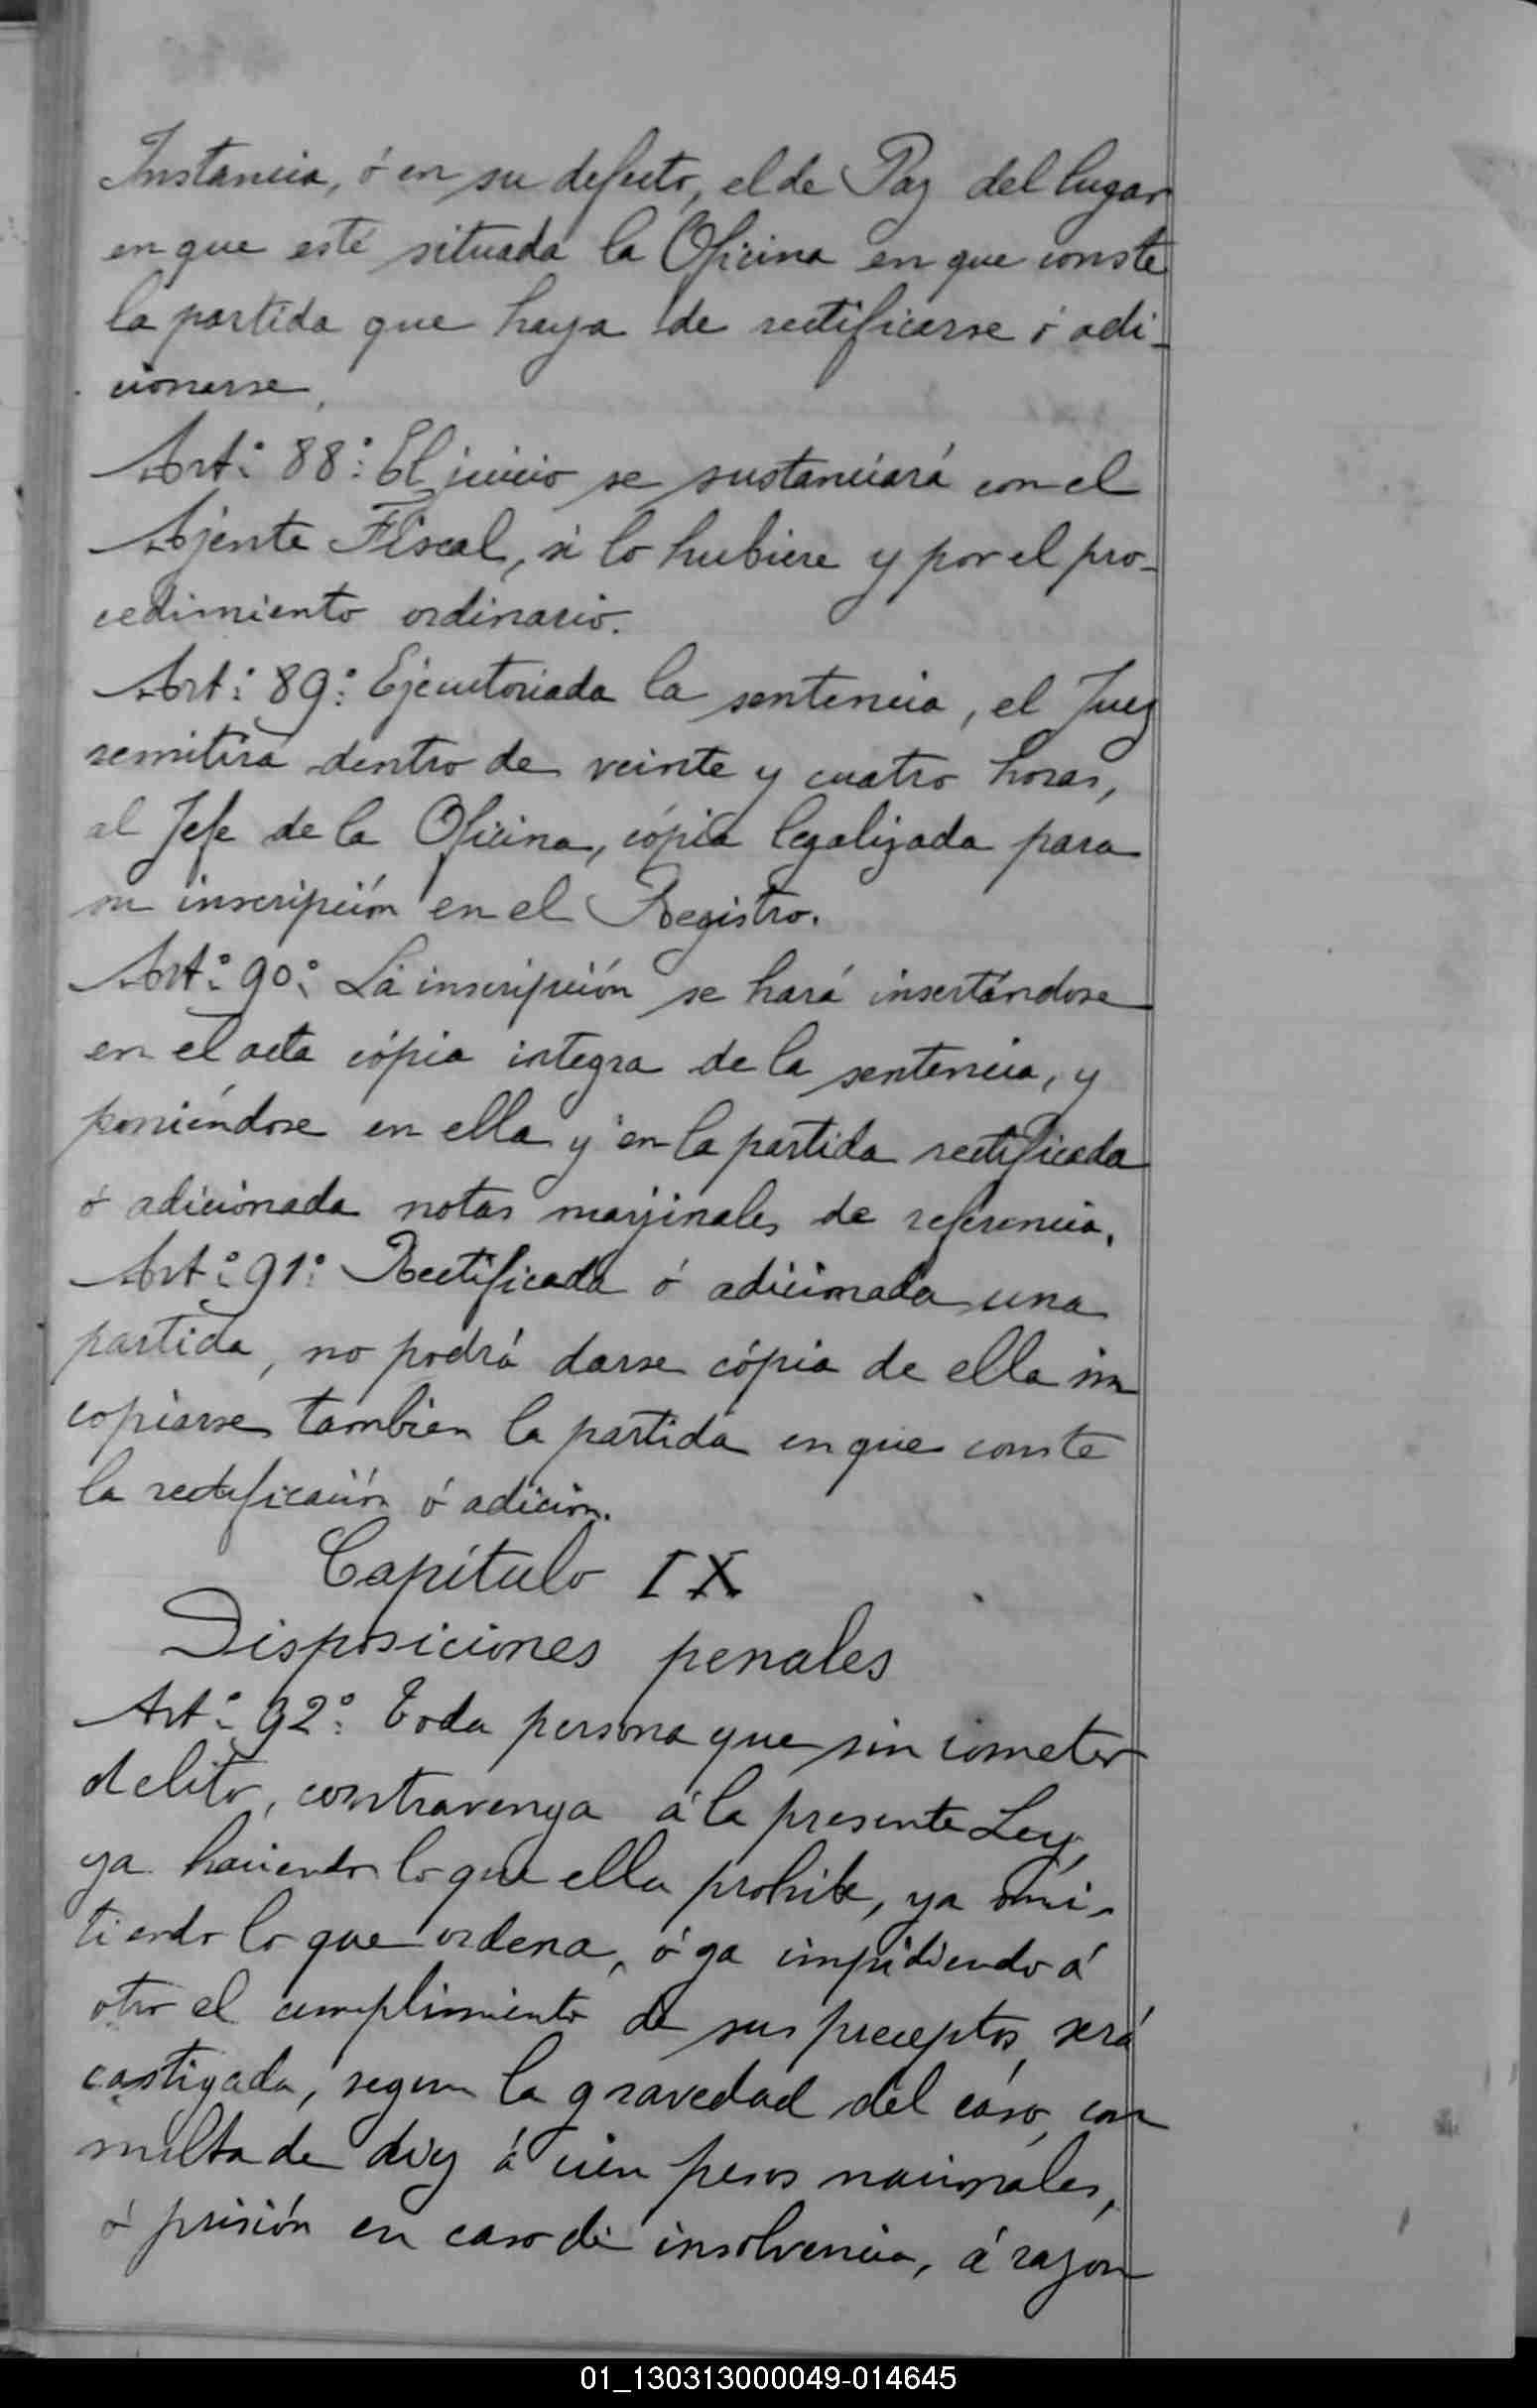 Instancia, ó en su defecto, el de Paz del lugar
en que esté situada la Oficina en que conste
la partida que haya de rectificarse ó adi-
cionarse.
Art.º 88.º El juicio se sustanciará con el
Ajente Fiscal, si lo hubiere y por el pro-
cedimiento ordinario.
Art.º 89.º Ejecutoriada la sentencia, el Juez
remitirá dentro de veinte y cuatro horas,
al Jefe de la Oficina, cópia legalizada para
su inscripción en el Registro.
Art.º 90.º La inscripción se hará insertándose
en el acta cópia integra de la sentencia, y
poniéndose en ella y en la partida rectificada
ó adicionada notas marjinales de referencia.
Art.º 91.º Rectificada ó adicionada una
partida, no podrá darse cópia de ella sin
copiarse tambien la partida en que conste
la rectificación ó adición.
Capítulo IX
Disposiciones penales
Art.º 92.º Toda persona que sin cometer
delito, contravenga á la presente Ley,
ya haciendo lo que ella prohibe, ya omi-
tiendo lo que ordena, ó ya impidiendo á
otro el cumplimiento de sus preceptos, será
castigada, segun la gravedad del caso, con
multa de diez á cien pesos nacionales,
ó prisión en caso de insolvencia, á razon
01_130313000049-014645